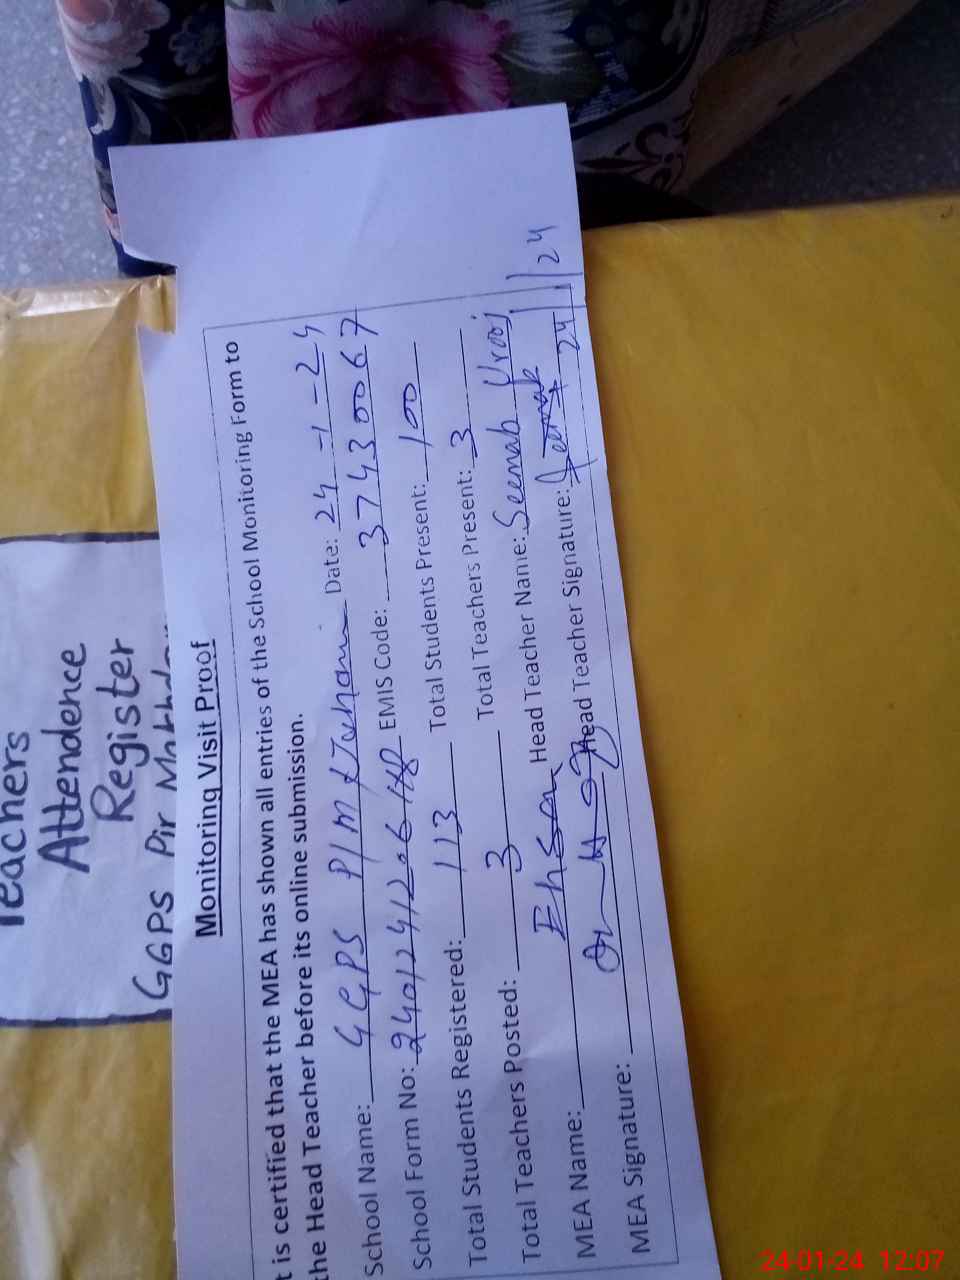 Teachers
Attendence
Register
GGPS Pir
Monitoring Visit Proof
t is certified that the MEA has shown all entries of the School Monitoring Form to
the Head Teacher before its online submission.
School Name: GGPS P/M Date: 24-1-24
School Form No: EMIS Code: 37430067
Total Students Registered: 113 Total Students Present: 100
Total Teachers Posted: 3 Total Teachers Present: 3
MEA Name: Ehsan Head Teacher Name: Seemab Urooj
MEA Signature: Head Teacher Signature: Seemab 24/1/24
24-01-24 12:07